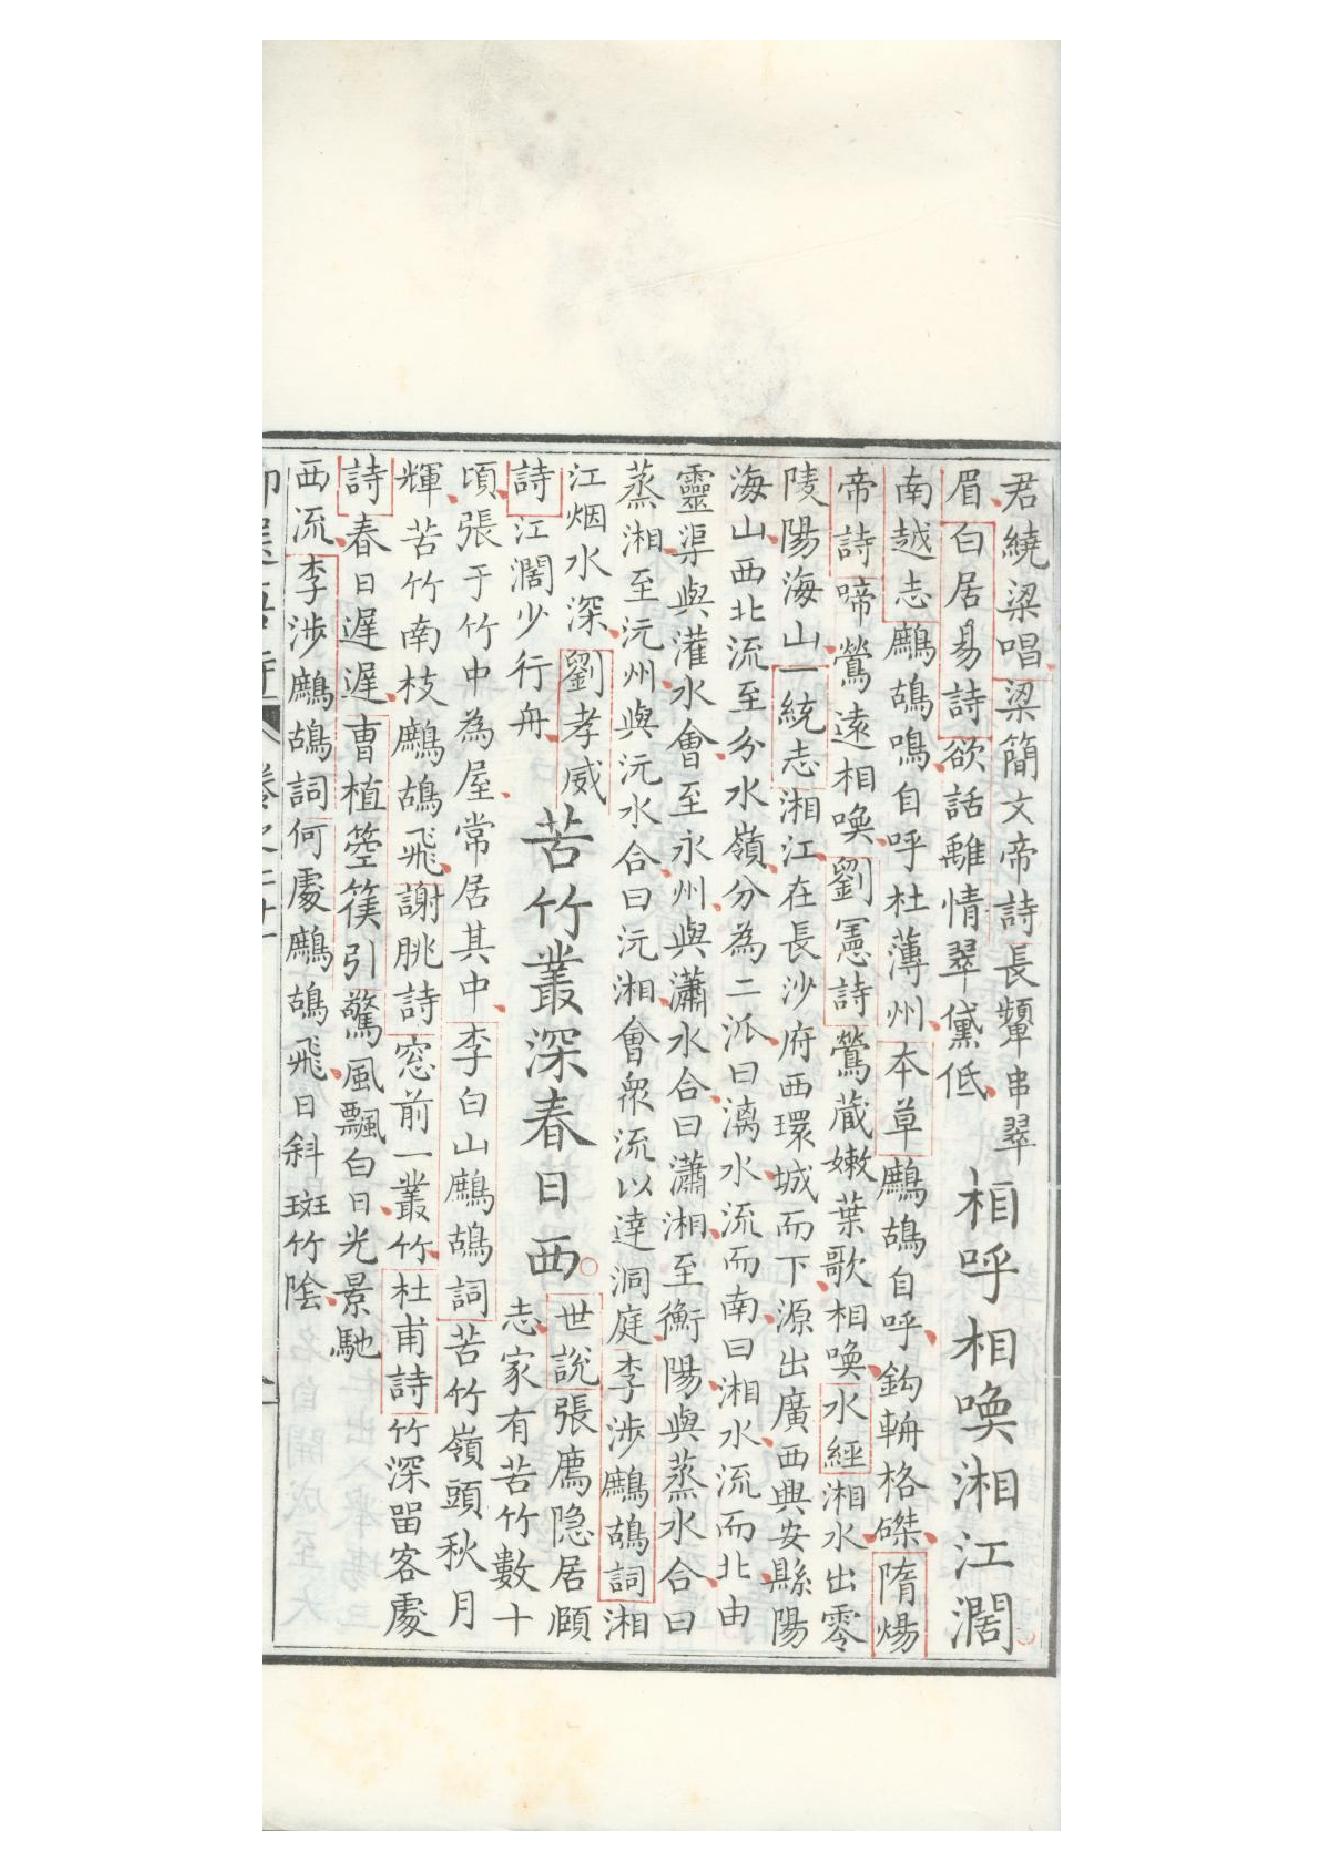 君繞梁唱梁簡文帝詩長顰串翠
眉白居易詩欲話離情翠黛低
相呼相喚湘江闊
南越志鷓鴣鳴自呼杜薄州本草鷓鴣自呼鈎輈格磔隋煬
帝詩啼鶯遠相喚劉憲詩鶯藏嫩葉歌相喚水經湘水出零
陵陽海山一統志湘江在長沙府西環城而下源出廣西興安縣陽
海山西北流至分水嶺分為二派曰漓水流而南曰湘水流而北由
靈渠與灌水會至永州與瀟水合曰瀟湘至衡陽與蒸水合曰
蒸湘至沅州與沅水合曰沅湘會衆流以達洞庭李涉鷓鴣詞湘
江烟水深劉孝威
詩江濶少行舟
苦竹叢深春日西
世説張廌隐居頤
志家有苦竹數十
頃張于竹中為屋常居其中李白山鷓鴣詞苦竹嶺頭秋月
輝苦竹南枝鷓鴣飛謝朓詩窓前一叢竹杜甫詩竹深留客處
詩春日遲遲曹植箜篌引驚風飄白日光景馳
西流李涉鷓鴣詞何處鷓鴣飛日斜斑竹陰
卷之二十一